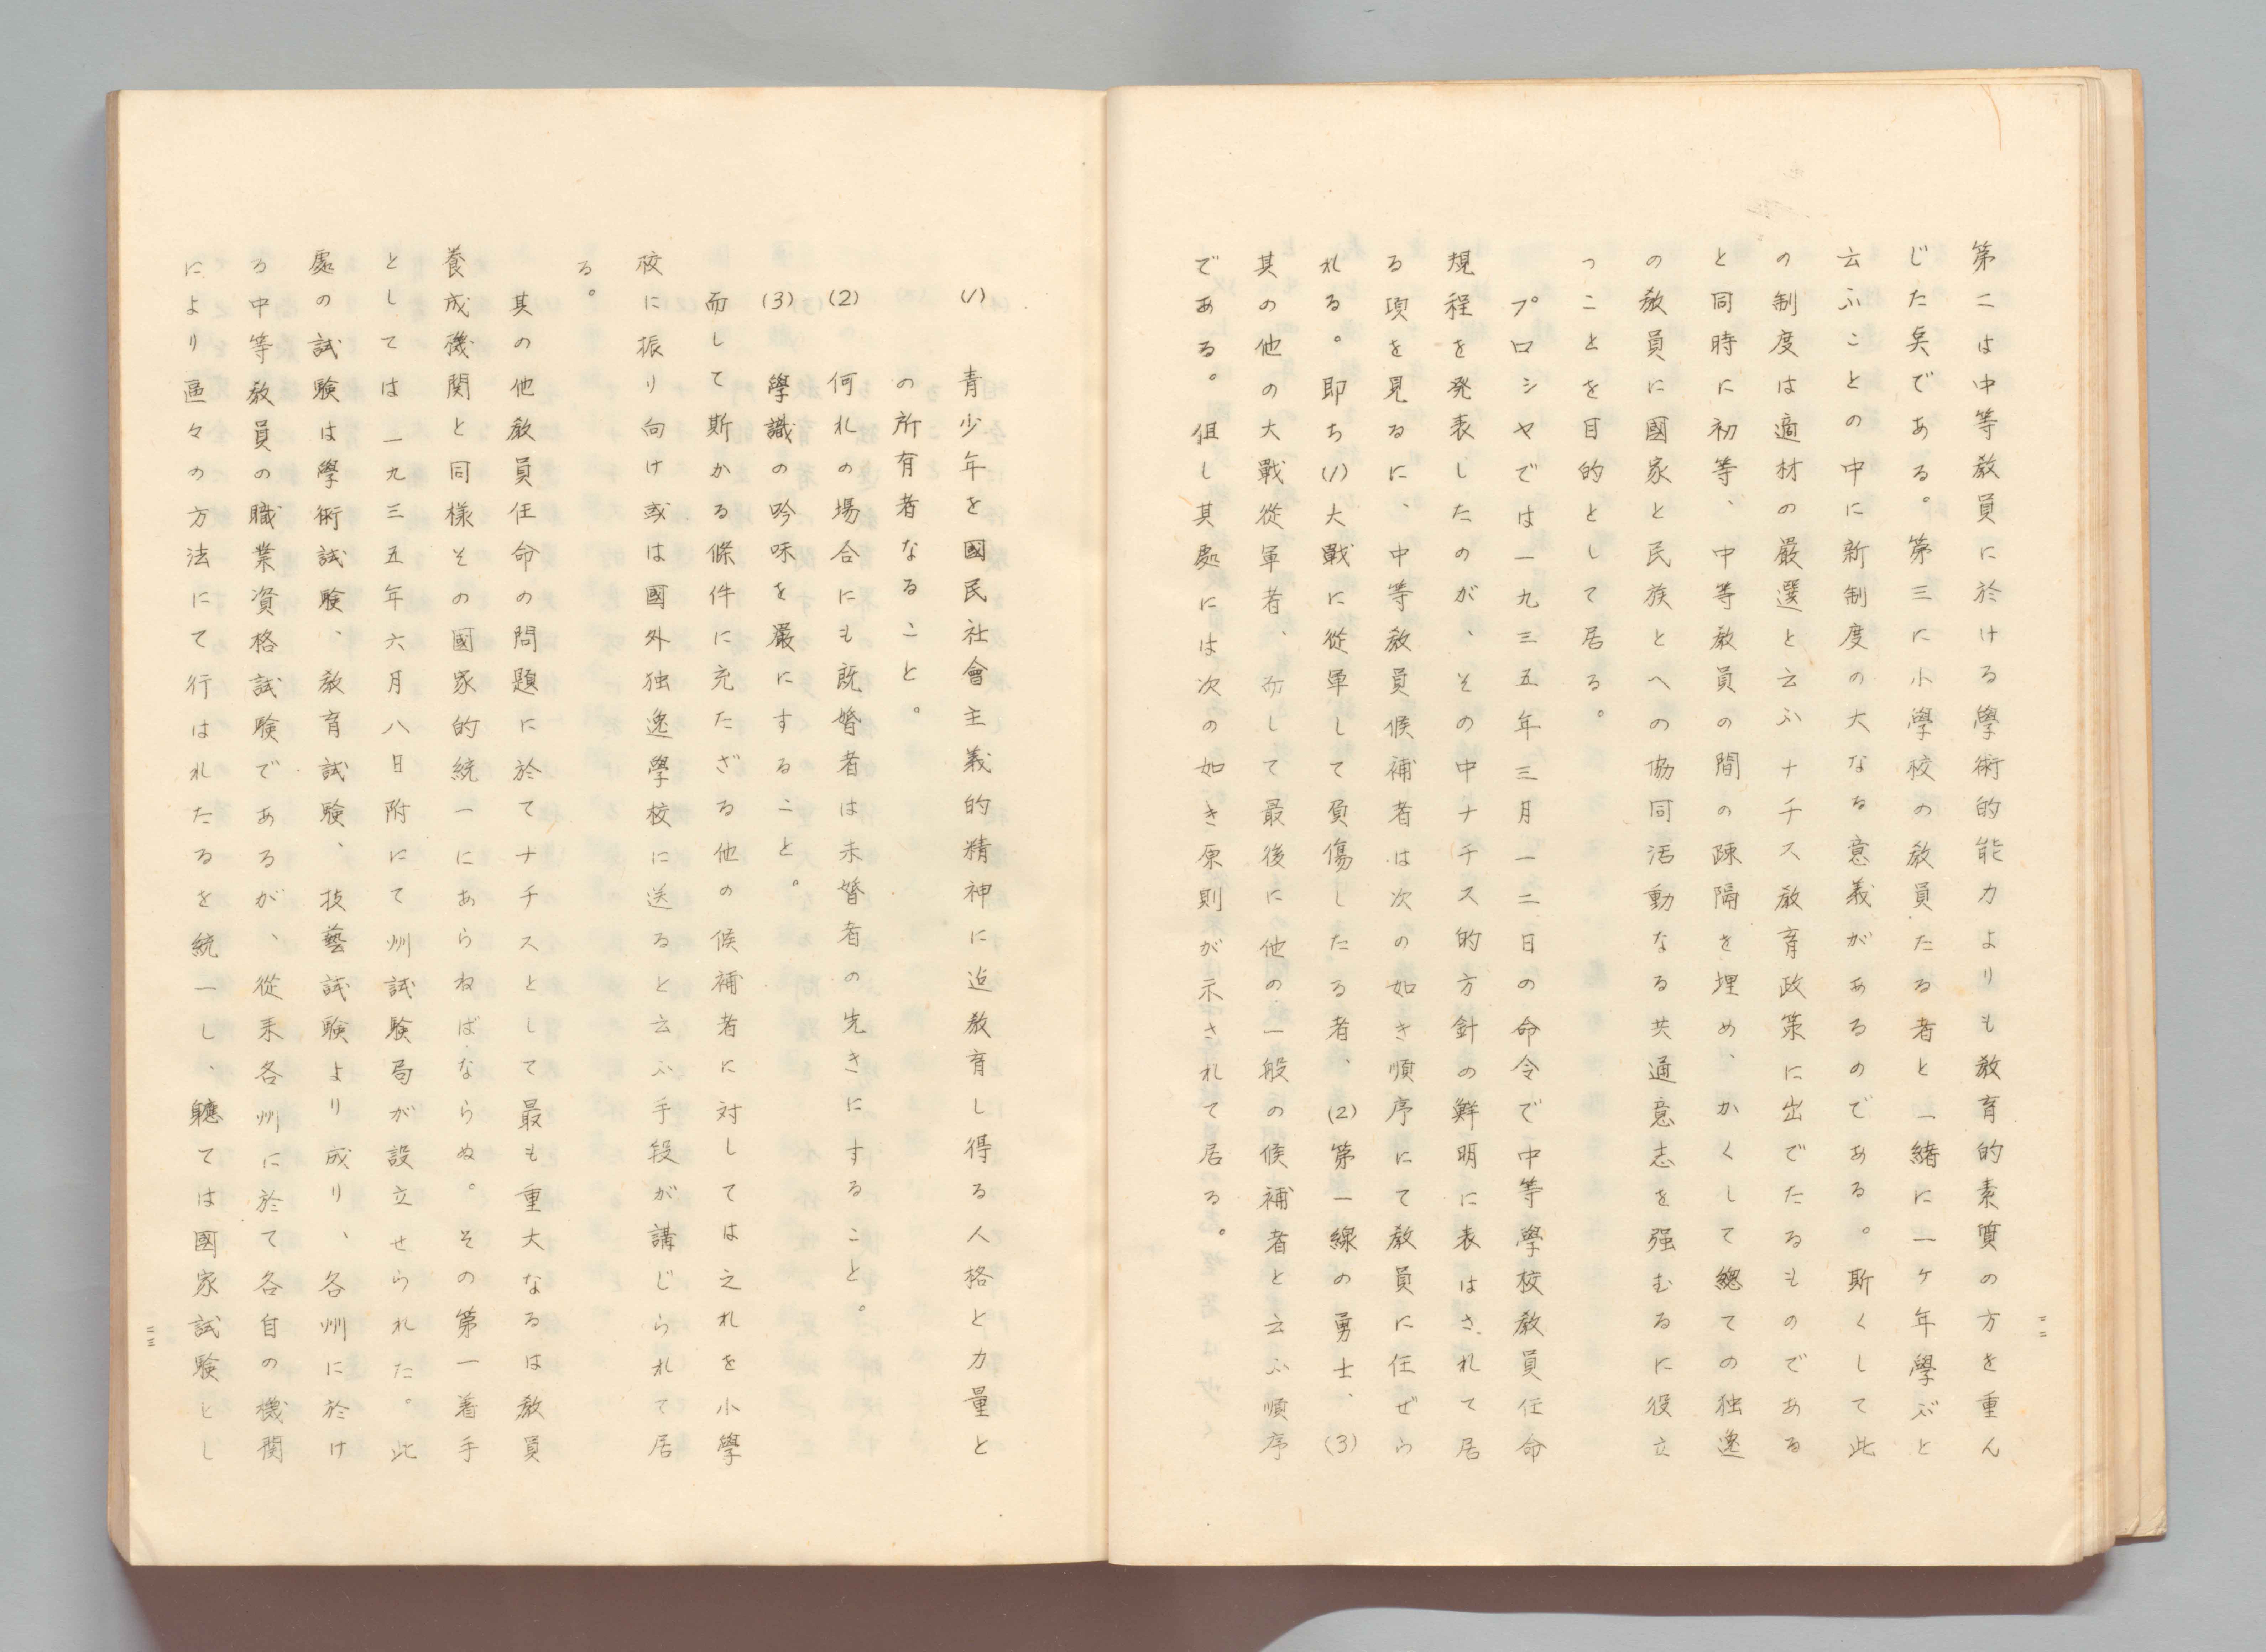 第二は中等教員に於ける學術的能力よりも教育的素質の方を重ん
じた矣である。第三に小學校の教員たる者と一緒に一ヶ年學ぶと
云ふことの中に新制度の大なる意義があるのである。斯くして此
の制度は適材の嚴選と云ふナチス教育政策に出でたるものである
と同時に初等、中等教員の間の疎隔を埋め、かくして總ての独逸
の教員に國家と民族とへの協同活動なる共通意志を强むるに役立
つことを目的として居る。
プロシヤでは一九三五年三月一二日の命令で中等學校教員任命
規程を発表したのが、その中ナチス的方針の鮮明に表はされて居
る項を見るに、中等教員候補者は次の如き順序にて教員に任ぜら
れる。即ち(1)大戰に從軍して負傷したる者、(2)第一線の勇士、(3)
其の他の大戰從軍者、而して最後に他の一般の候補者と云ふ順序
である。但し其處には次の如き原則が示されて居る。
二二
(1) 青少年を國民社會主義的精神に迄教育し得る人格と力量と
の所有者なること。
(2) 何れの場合にも既婚者は未婚者の先きにすること。
(3) 學識の吟味を嚴にすること。
而して斯かる條件に充たざる他の候補者に対しては之れを小學
校に振り向け或は國外独逸學校に送ると云ふ手段が講じられて居
る。
其の他教員任命の問題に於てナチスとして最も重大なるは教員
養成機関と同様その國家的統一にあらねばならぬ。その第一着手
としては一九三五年六月八日附にて州試験局が設立せられた。此
處の試験は學術試験、教育試験、技藝試験より成り、各州に於け
る中等教員の職業資格試験であるが、從来各州に於て各自の機関
により區々の方法にて行はれたるを統一し、軈ては國家試験とし
二三